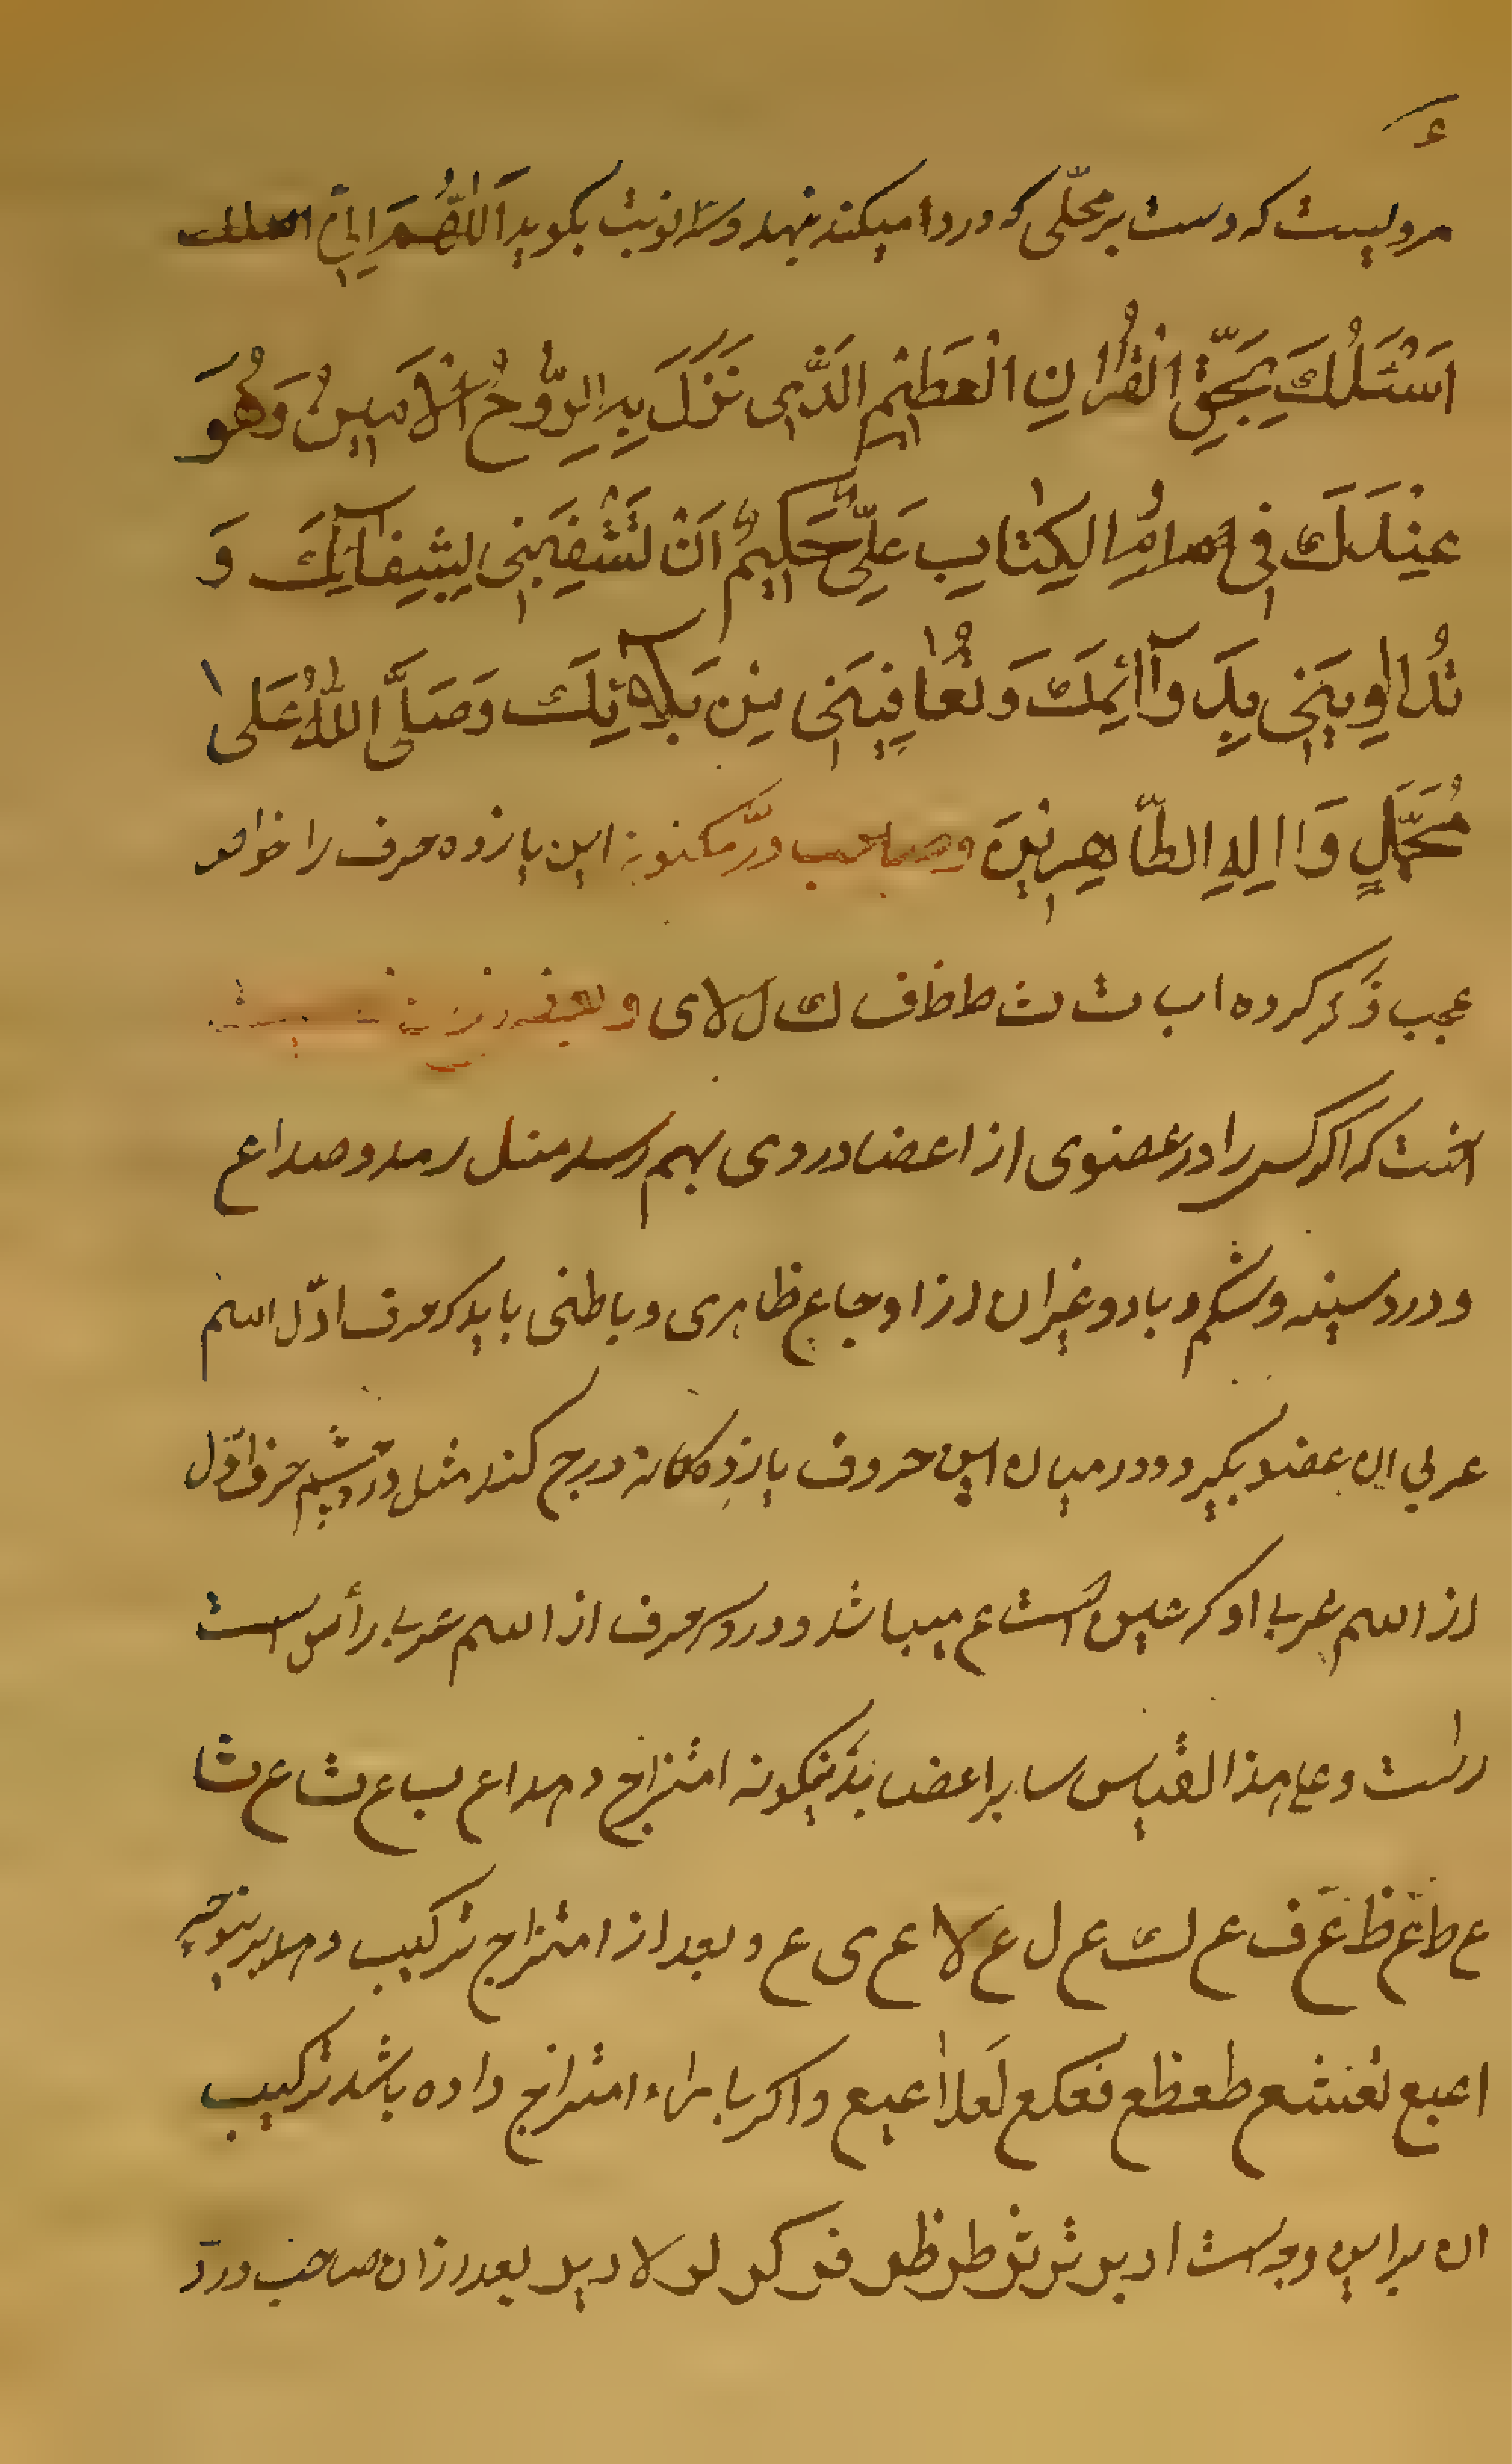 ع
مرویست که دست بر محلّی که درد میکند بنهد و سه نوبت بکوید اَللّٰهُمَّ اِنّی
اَسْئَلُكَ بِحَقِّ الْقُرْاٰنِ الْعَظیْمِ الَّذی نَزَلَ بِهِ الرُّوحُ الْاَمینُ وَهُوَ
عِنْدَكَ فی اُمِّ الکِتٰابِ عَلِیٌّ حَکیمٌ اَنْ تَشْفِیَنی بِشِفٰآئِكَ وَ
تُدٰاوِیَنی بِدَوآائِكَ وَ تُعٰافِیَنی مِنْ بَلاٰۤئِكَ وَصَلَّی اللّٰهُ عَلی
مُحَمَّدٍ وَ اٰلِهِ الطّاهِرینَ وصاحب درّ مکنون این یازده حرف را خواص
عجب ذکر کرده ا ب ت ث ط ظ ف ك ل لا ی و
انست که اکر کسی را در عضوی از اعضا دردی بهم رسد مثل رمد و صداع
و درد سینه و شکم و باد و غیر ان از اوجاع ظاهری و باطنی باید که حرف اوّل اسم
عربی ان عضو بکیرد و در میان این حروف یازده کانه درج کند مثل درد چشم حرف اوّل
از اسم عربی او که عین است ع میباشد و درد سر حرف از اسم عربی رأس است
ر است و علی هذا القیاس سایر اعضا بدینکونه امتزاج دهد ا ع ب ع ت ع ث
ع ط ع ظ ع ف ع ك ع ل ع لا ع ی ع و بعد از امتزاج ترکیب دهد بدینوجه
اعبع تعثع طعظع فعکع لعلاعیع و اکر با راء امتزاج داده باشد ترکیب
ان بر این وجه است ار بر تر ثر طر ظر فر کر لر لار یر بعد از ان صاحب درد